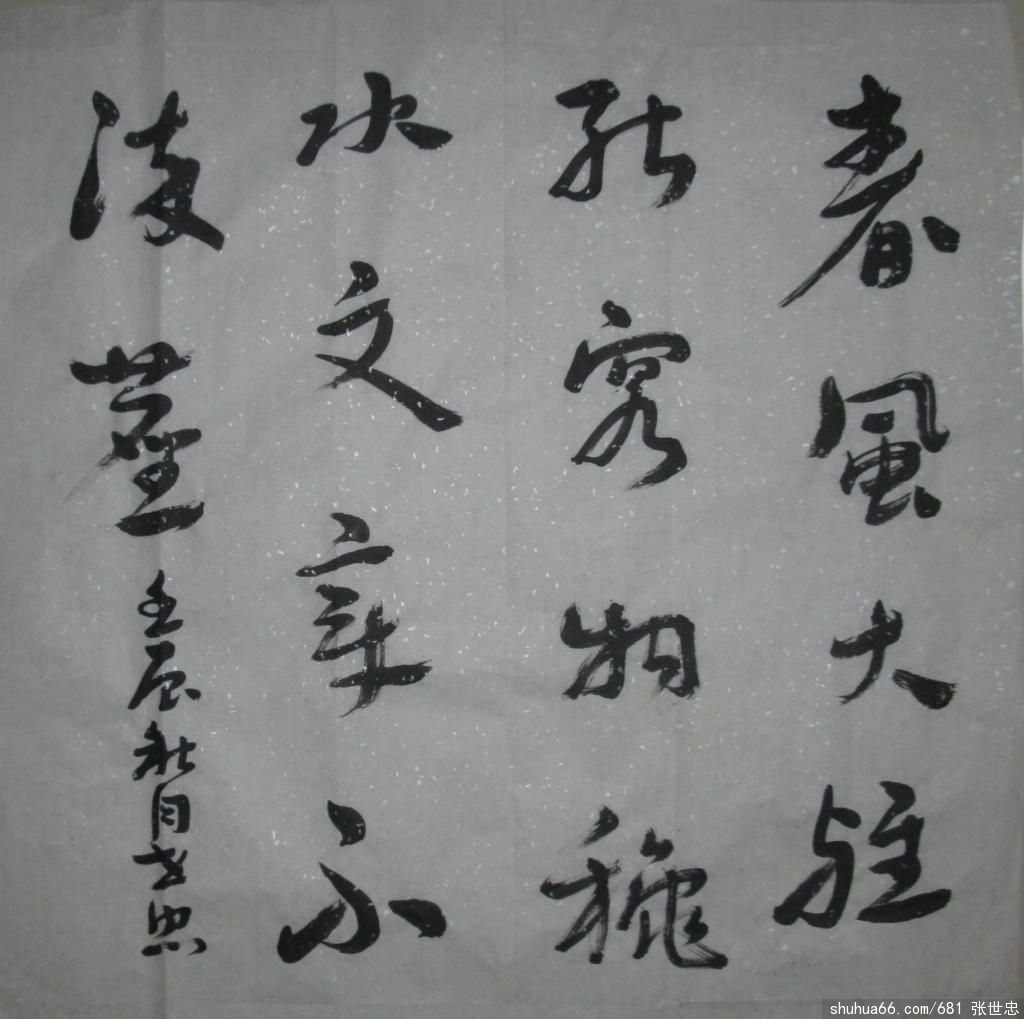 春風大雅
能容物穐
水文章不
染塵 壬辰秋月世忠
shuhua66.com/681 张世忠